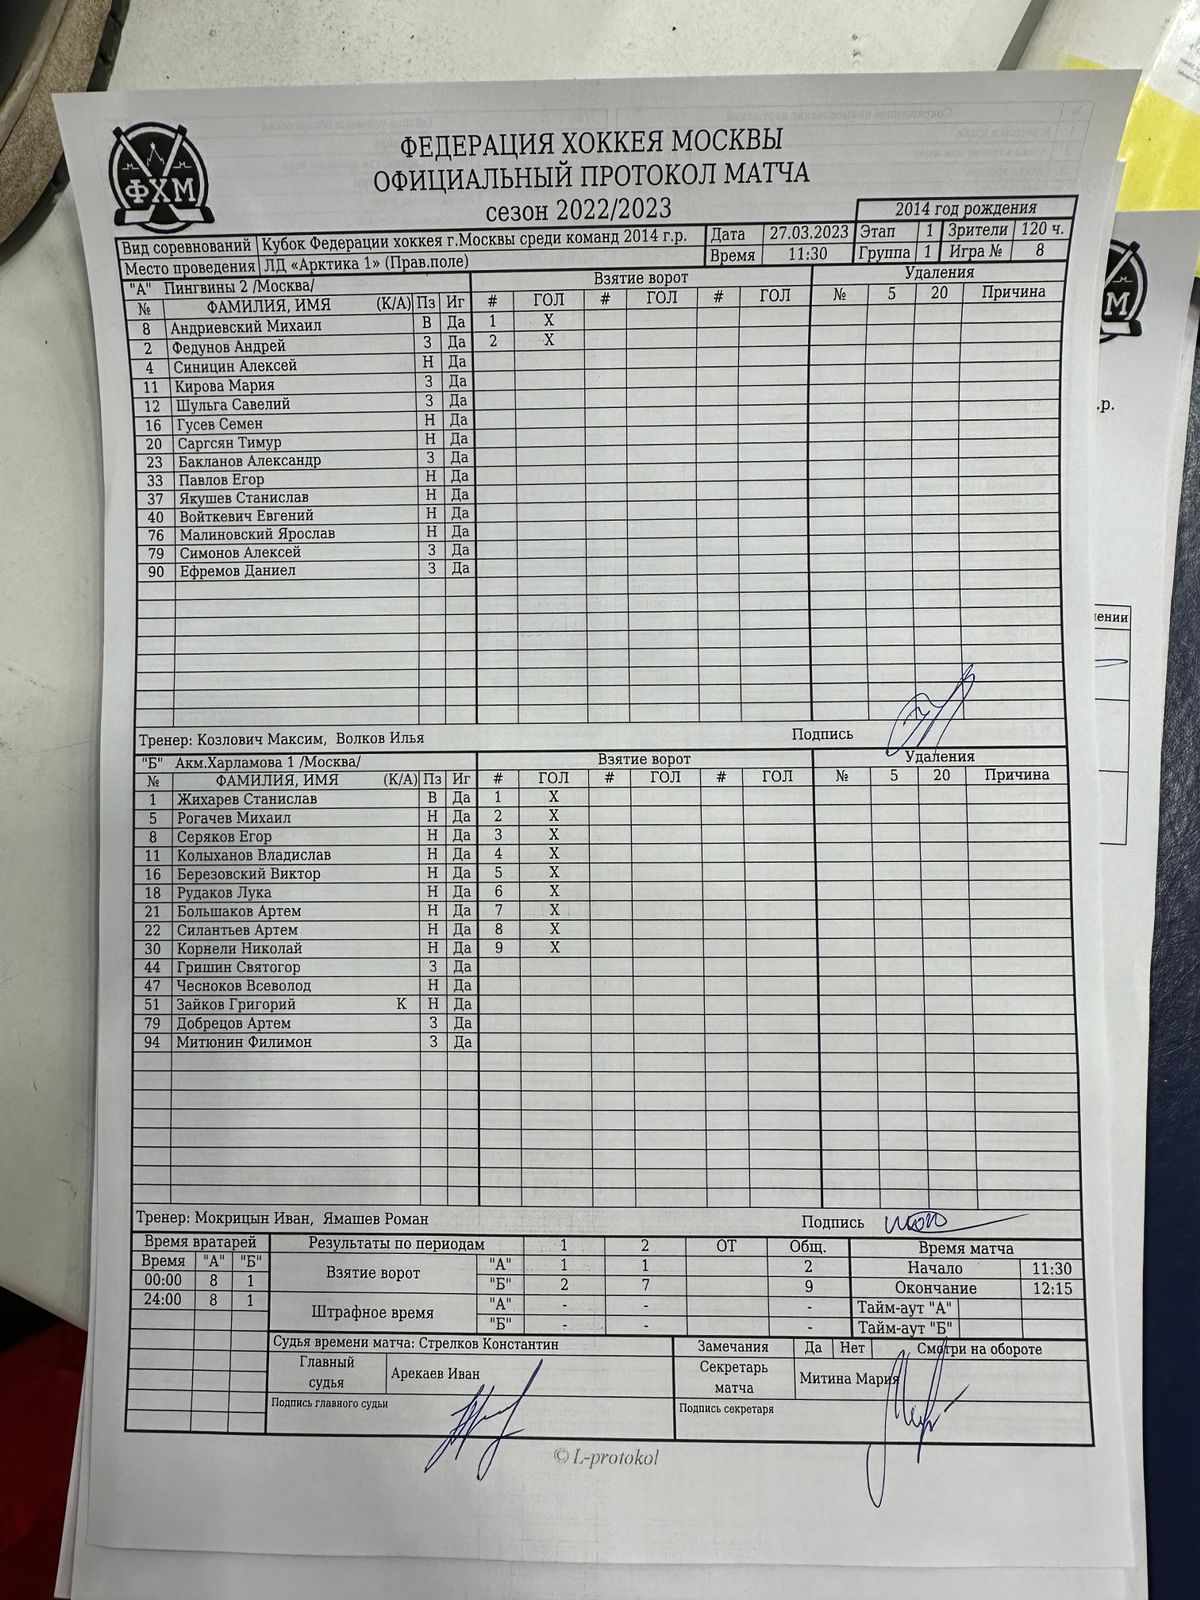 ФЕДЕРАЦИЯ ХОККЕЯ МОСКВЫ
ОФИЦИАЛЬНЫЙ ПРОТОКОЛ МАТЧА
сезон 2022/2023
ФХМ
2014 год рождения
Вид соревнований Кубок Федерации хоккея г.Москвы среди команд 2014 г.р. Дата 27.03.2023 Этап 1 Зрители 120 ч.
Место проведения ЛД «Арктика 1» (Прав.поле) Время 11:30 Группа 1 Игра № 8
"А" Пингвины 2 /Москва/ Взятие ворот Удаления
№ ФАМИЛИЯ, ИМЯ (К/А) Пз Иг # ГОЛ # ГОЛ # ГОЛ № 5 20 Причина
8 Андриевский Михаил В Да 1 X
2 Федунов Андрей З Да 2 X
4 Синицин Алексей Н Да
11 Кирова Мария З Да
12 Шульга Савелий З Да
16 Гусев Семен Н Да
20 Саргсян Тимур Н Да
23 Бакланов Александр З Да
33 Павлов Егор Н Да
37 Якушев Станислав Н Да
40 Войткевич Евгений Н Да
76 Малиновский Ярослав Н Да
79 Симонов Алексей З Да
90 Ефремов Даниел З Да
Тренер: Козлович Максим, Волков Илья Подпись
"Б" Акм.Харламова 1 /Москва/ Взятие ворот Удаления
№ ФАМИЛИЯ, ИМЯ (К/А) Пз Иг # ГОЛ # ГОЛ # ГОЛ № 5 20 Причина
1 Жихарев Станислав В Да 1 X
5 Рогачев Михаил Н Да 2 X
8 Серяков Егор Н Да 3 X
11 Колыханов Владислав Н Да 4 X
16 Березовский Виктор Н Да 5 X
18 Рудаков Лука Н Да 6 X
21 Большаков Артем Н Да 7 X
22 Силантьев Артем Н Да 8 X
30 Корнели Николай Н Да 9 X
44 Гришин Святогор З Да
47 Чесноков Всеволод Н Да
51 Зайков Григорий К Н Да
79 Добрецов Артем З Да
94 Митюнин Филимон З Да
Тренер: Мокрицын Иван, Ямашев Роман Подпись
Время вратарей Результаты по периодам 1 2 ОТ Общ. Время матча
Время "А" "Б" Взятие ворот "А" 1 1 2 Начало 11:30
00:00 8 1 "Б" 2 7 9 Окончание 12:15
24:00 8 1 Штрафное время "А" - - - Тайм-аут "А"
"Б" - - - Тайм-аут "Б"
Судья времени матча: Стрелков Константин Замечания Да Нет Смотри на обороте
Главный судья Арекаев Иван Секретарь матча Митина Мария
Подпись главного судьи Подпись секретаря
© L-protokol
.р.
ении